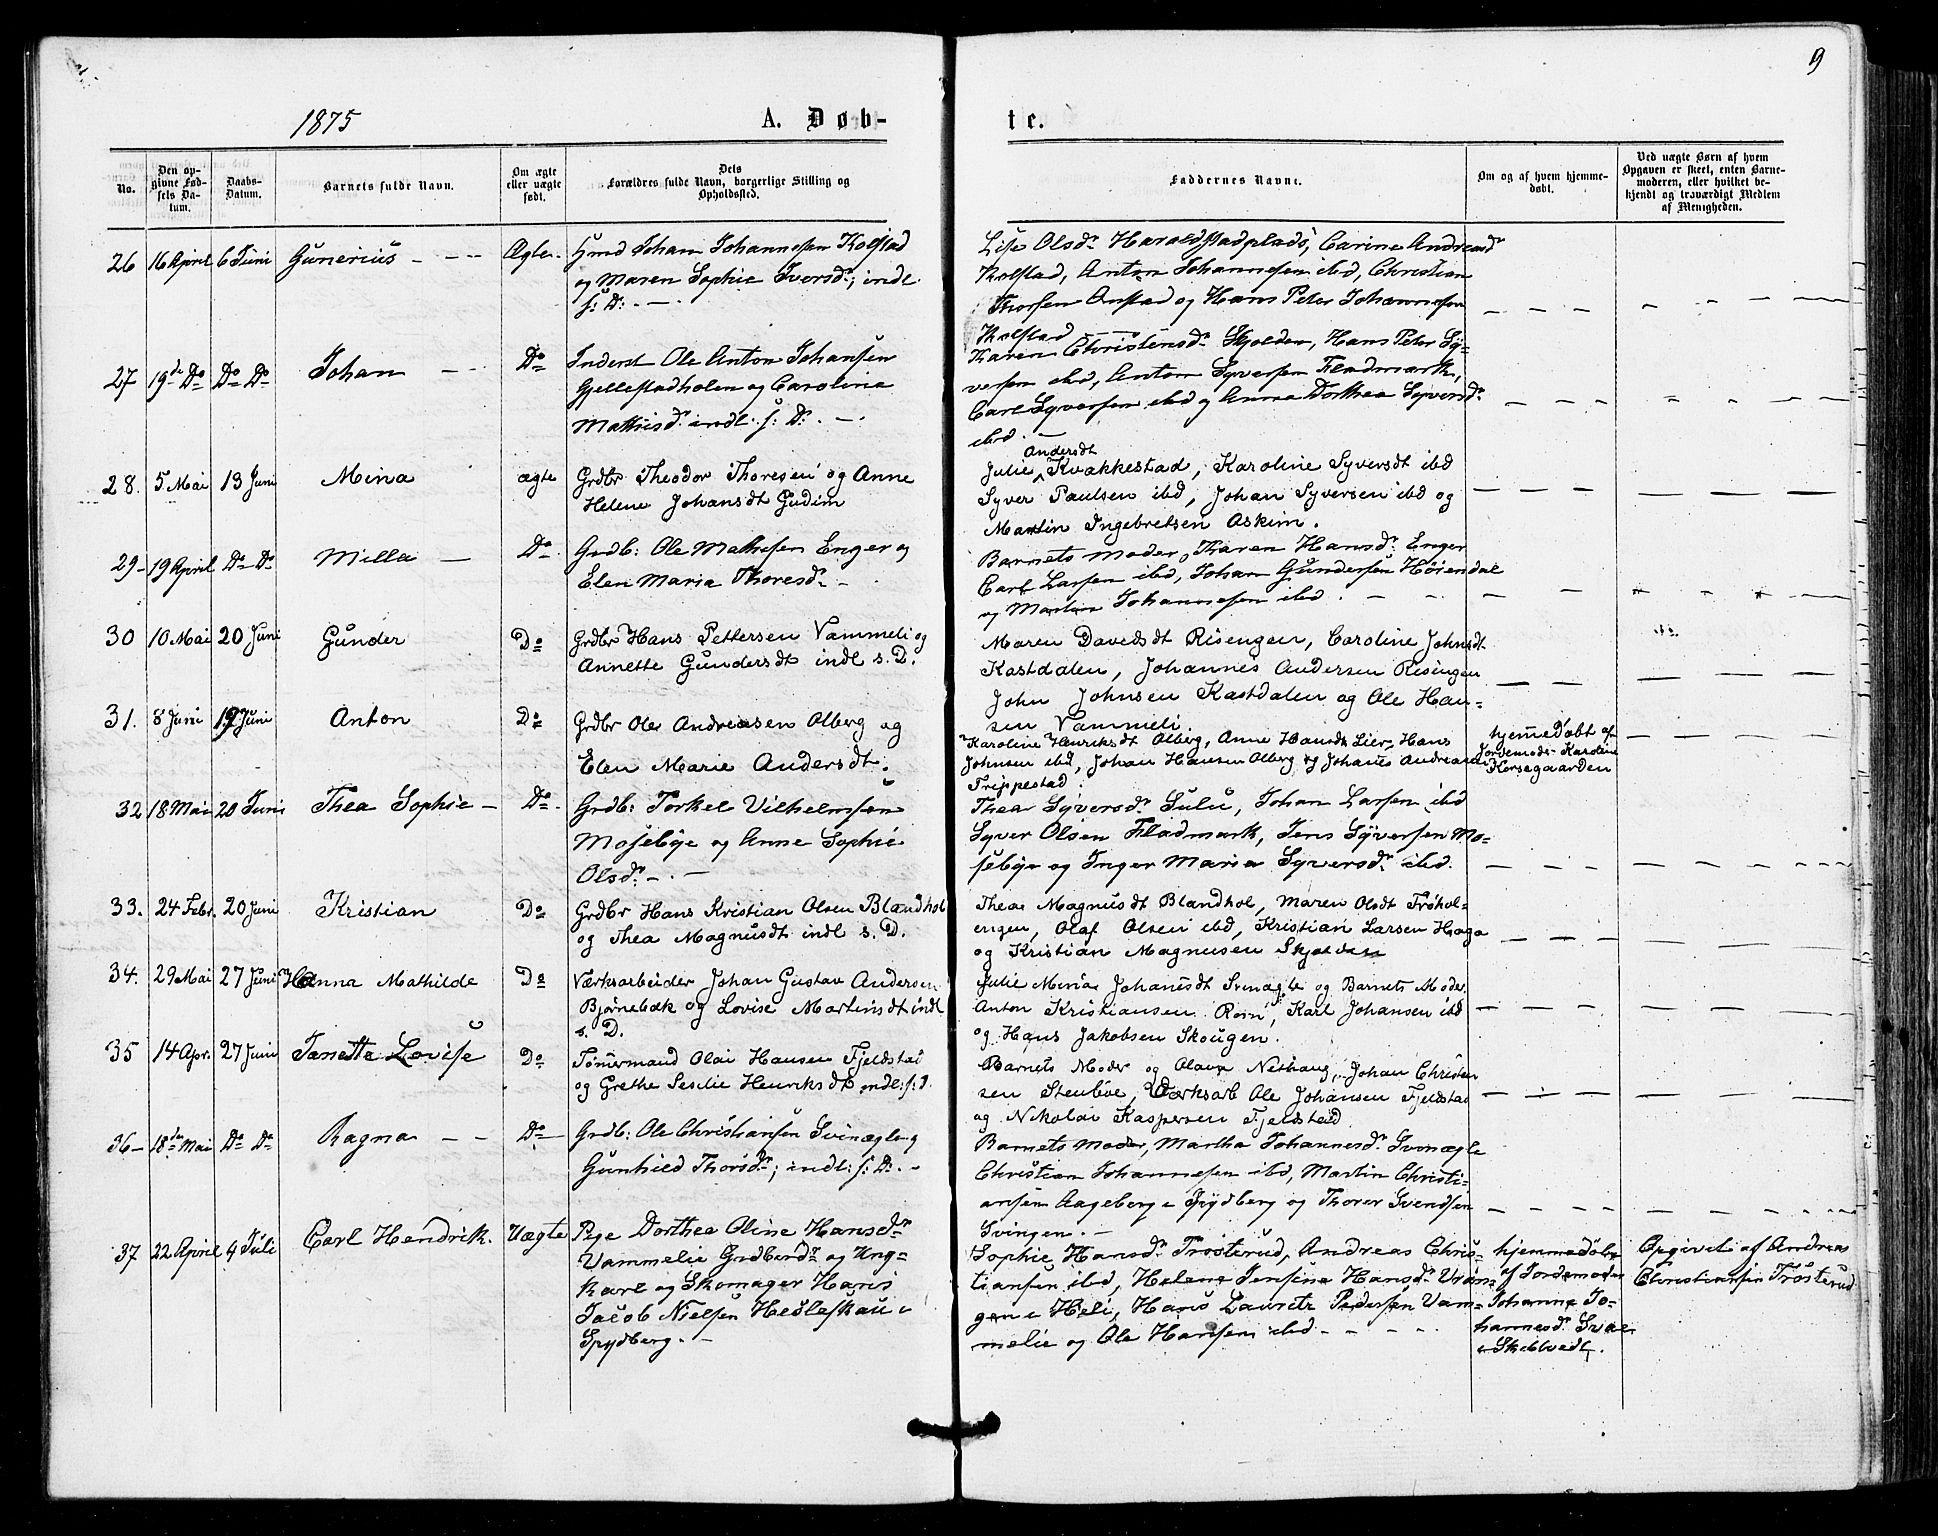 9
1875
A. Døb-
te.
No.
Den op-
givne Fød-
sels Da-
tum.
Daabs-
Datum.
Barnets fulde Navn.
Om ægte
eller uægte
født.
Dets
Forældres fulde Navn, borgerlige Stilling og
Opholdssted.
Faddernes Navne.
Om og af hvem hjemme-
døbt.
Ved uægte Børn af hvem
Opgaven er skeet, enten Barne-
moderen, eller hvilket be-
kjendt og troværdigt Medlem
af Menigheden.
26 16 April 6 Juni Gunerius - - - Ægte. Gmd Johan Johannesen Kolstad
og Maren Sophie Iversdr; indl
s: D: . - .
Lise Olsdr Haraldstadplads, Carine Andreasdr
Kolstad, Anton Johannesen ibd, Christian
Thorsen Onstad og Hans Peter Johannesen
Kolstad
27 19de Do Do Do Johan - - Do Inderst Ole Anton Johansen
Gjellestadholen og Caroline
Mathisdr indl. s: D: . -
Karen Christensdr Skjolden, Hans Peter Sy-
versen ibd, Anton Syversen Fladmark,
Carl Syversen ibd og Anne Dorthea Syversdr
ibd. -
28. 5 Mai 13 Juni Mina ægte Grdbr Theodor Thoresen og Anne
Helene Johansdt Gudim
Andersdt
Julie Kvakkestad, Karoline Syversdt ibd
Syver Paulsen ibd, Johan Syversen ibd og
Martin Ingebretsen Askim.
29- 19 April Do Do Milla - Do Grdb: Ole Mathesen Enger og
Elen Maria Thoresdr -
Barnets moder, Karen Hansdr Enger
Carl Larsen ibd, Johan Gundersen Hørendal
og Martin Johannesen ibd.
30 10 Mai 20 Juni Gunder Do Grdbr Hans Pettersen Vammeli og
Annette Gundersdt indl s. D.
Maren Davedsdt Risengen, Caroline Johnsdt
Kastdalen, Johannes Andersen Risengen
John Johnsen Kastdalen og Ole Han-
sen Vammeli
31. 8 Juni 19 Juni Anton Do Grdbr Ole Andreasen Olberg og
Elen Marie Andersdt.
Karoline Henriksdt Olberg, Anne Hansdt Lier, Hans
Johnsen ibd, Johan Hansen Olberg og Johanes Andreasen
Trippestad.
hjemmedøbt af
Jordemodr Karoline
Korsegaarden
32 18 Mai 20 Juni Thea Sophie - Do Grdb: Torkel Vilhelmsen
Mosebye og Anne Sophie
Olsdr - . -
Thea Syversdr Sulu, Johan Larsen ibd
Syver Olsen Fladmark, Jens Syversen Mo-
sebye og Inger Maria Syversdr ibd.
33. 24 Febr. 20 Juni Kristian Do Grdbr Hans Kristian Olsen Blandhol
og Thea Magnusdt indl s. D.
Thea Magnusdt Blandhol, Maren Olsdt Frøhol-
engen, Olaf Olsen ibd, Kristian Larsen Haga
og Kristian Magnusen Skjolden
34. 29 Mai 27 Juni Hanna Mathilde Do Værksarbeider Johan Gustav Andersen
Bjørnebæk og Lovise Martinsdt indl
s. D.
Julie Maria Johanesdt Svinægle og Barnets Moder,
Anton Kristiansen Roin, Karl Johansen ibd
og Hans Jakobsen Skougen.
35 14 Apr. 27 Juni Janette Lovise Do Tømermand Olai Hansen Fjeldstad
og Grethe Seselie Henriksdt indl: s: D.
Barnets Moder og Olava Nethaug, Johan Christen
sen Stenbøe, Værksarb Ole Johansen Fjeldstad
og Nikolai Kaspersen Fjeldstad
36- 18de Mai Do Do Ragna - - Do Grdb: Ole Christiansen Svinægle og
Gunhild Thorsdr; indl: s: D: . -
Barnets moder, Martha Johannesdr Svinægle
Christian Johannesen ibd, Martin Christi-
ansen Aageberg i Spydberg og Thorer Svendsen
Svingen. -
37 22 April 4 Juli Carl Hendrik. Uægte Pige Dorthea Oline Hansdr
Vammelie Grdbrdr og Ung-
karl og Skomager Hans
Jacob Nielsen Heslefkau i
Spydberg. -
Sophie Hansdr Trøsterud, Andreas Chris-
tiansen ibd, Helene Jensine Hansdr Vran-
gen i Heli, Hans Lauretz Pedersen Vam-
melie og Ole Hansen ibd - - -
hjemmedøbt
af Jordemoder
Johanne Jo-
hannesdr Svae
i Skibtvedt.
Opgivet af Andreas
Christiansen Trøsterud